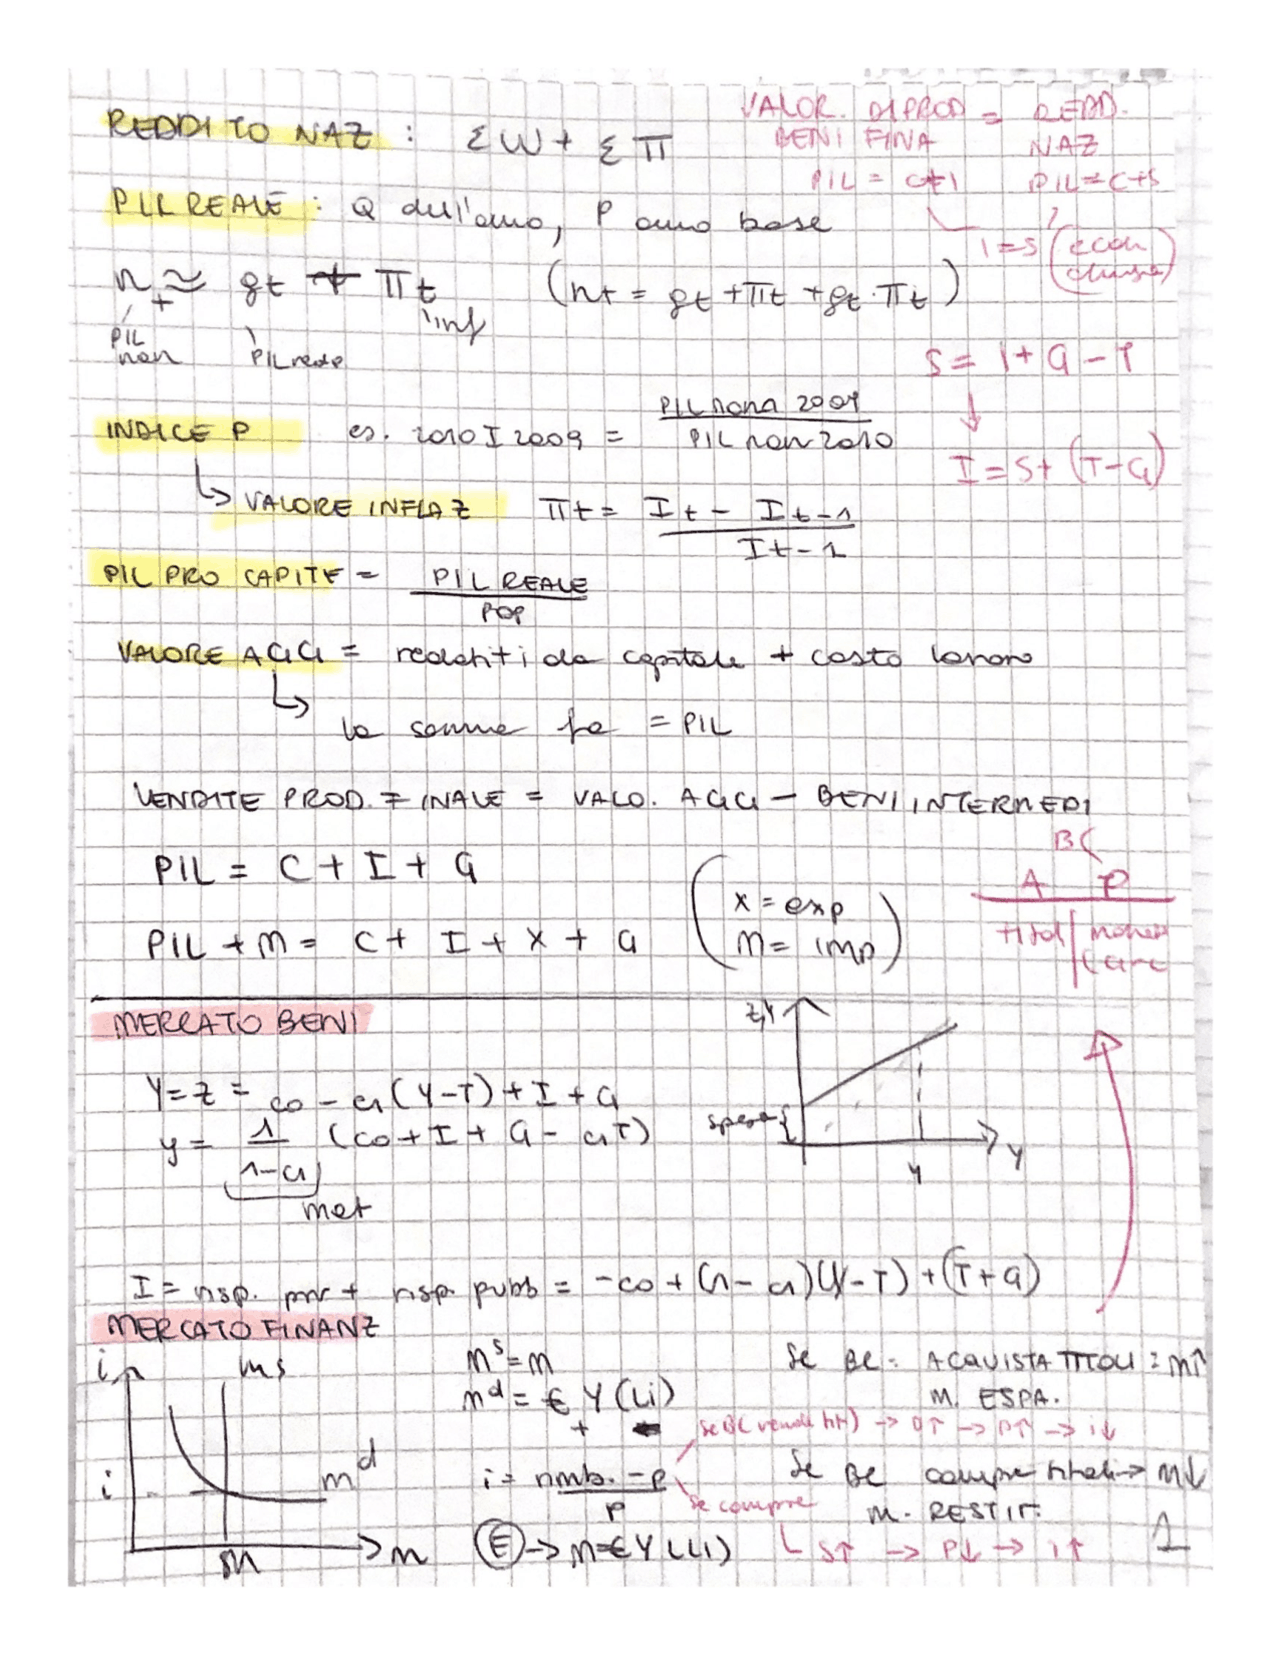 REDDITO NAZ : ΣW + ΣΠ
VALOR. DI PROD = REDD.
BENI FINA NAZ
PIL = C+I PIL=C+S
PIL REALE : Q dell'anno, P anno base
I=S (econ chiusa)
nt ≈ gt + Πt (nt = gt + Πt + gt·Πt)
inf
PIL nom PIL reale
S = I + G - T
INDICE P es. 2010 I 2009 = PIL nona 2009 / PIL nom 2010
I = S + (T-G)
VALORE INFLAZ Πt = It - It-1 / It-1
PIL PRO CAPITE = PIL REALE / POP
VALORE AGG = redditi da capitale + costo lavoro
la somma fa = PIL
VENDITE PROD. FINALE = VALO. AGG - BENI INTERMEDI
BC
A P
titol moneta
circ
PIL = C + I + G
PIL + M = C + I + X + G
(X = exp
M = imp)
MERCATO BENI
Z,Y
Y=Z = co - c1(Y-T) + I + G
y = 1/1-c1 (co + I + G - c1T)
spesa
Y
Y
molt
I = risp. priv + risp. pubb = -co + (1-c1)(Y-T) + (T+G)
MERCATO FINANZ
i ms
i md
M m
ms = m
md = € Y (Li)
+ -
i = rimb. - P / P
(E) → M = € Y L(i)
se BC = ACQUISTA TITOLI : M↑
M. ESPA.
se BC vende tit) → O↑ → P↑ → i↓
se BC compra titoli → M↓
se compra
M. RESTIT.
S↑ → P↓ → i↑
1